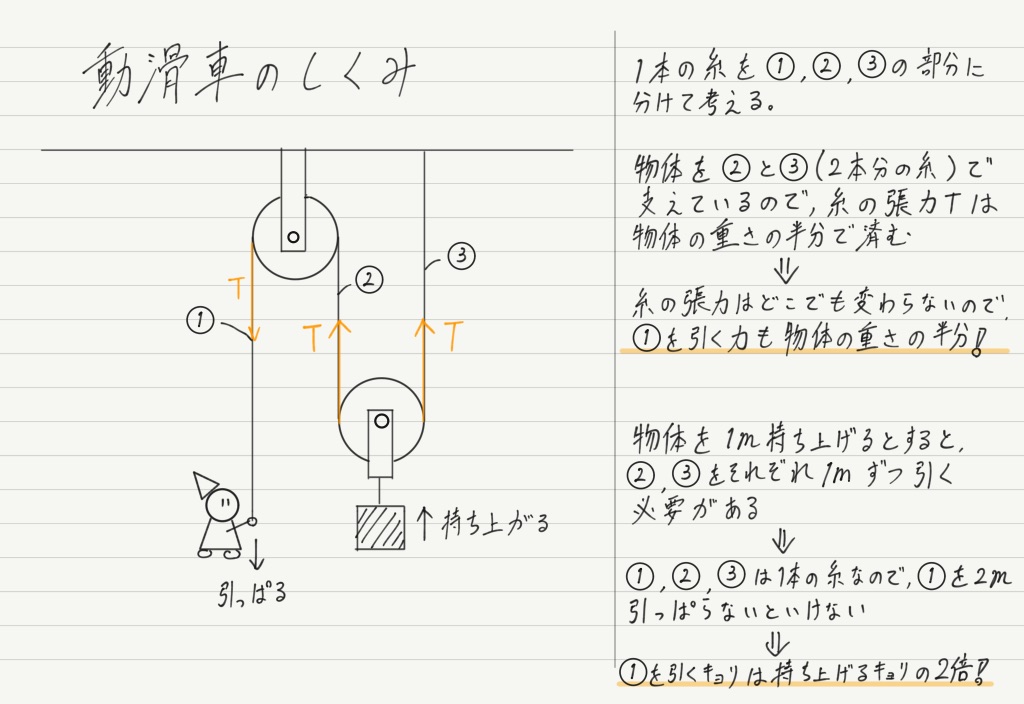 動滑車のしくみ
T
①
T
②
③
T
↑持ち上がる
引っぱる
1本の糸を①,②,③の部分に
分けて考える。
物体を②と③(2本分の糸)で
支えているので,糸の張力Tは
物体の重さの半分で済む
⇓
糸の張力はどこでも変わらないので,
①を引く力も物体の重さの半分!
物体を1m持ち上げるとすると,
②,③をそれぞれ1mずつ引く
必要がある
⇓
①,②,③は1本の糸なので,①を2m
引っぱらないといけない
⇓
①を引くキョリは持ち上げるキョリの2倍!